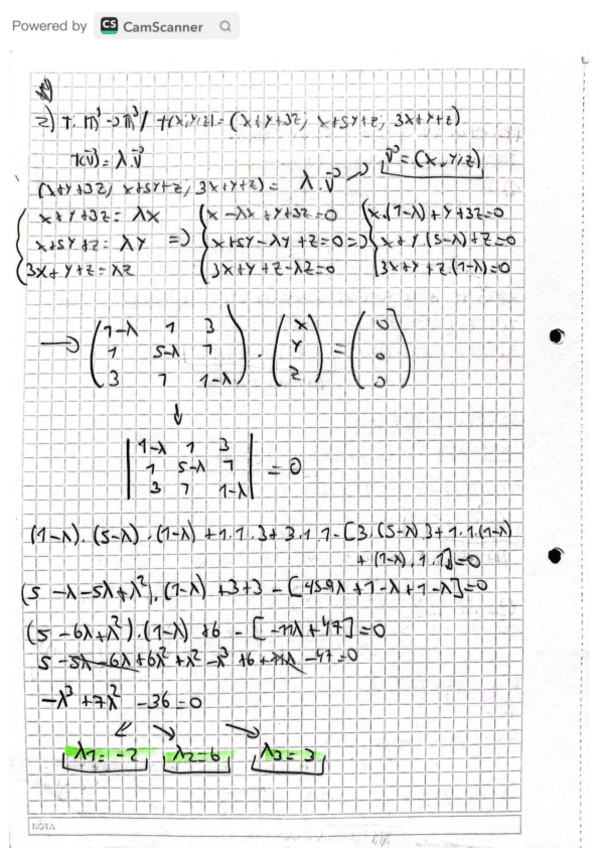 Powered by CS CamScanner
2) T: ℝ³→ℝ³ / T(x,y,z) = (x+y+3z, x+5y+z, 3x+y+z)
T(v⃗) = λ.v⃗
v⃗ = (x,y,z)
(x+y+3z, x+5y+z, 3x+y+z) = λ.v⃗ →
{ x+y+3z = λx { x-λx+y+3z=0 { x.(1-λ)+y+3z=0
x+5y+z = λy => x+5y-λy+z=0 => x+y(5-λ)+z=0
3x+y+z = λz 3x+y+z-λz=0 3x+y+z.(1-λ)=0
→ (1-λ 1 3) (x) (0)
(1 5-λ 1) . (y) = (0)
(3 1 1-λ) (z) (0)
↓
|1-λ 1 3|
|1 5-λ 1| = 0
|3 1 1-λ|
(1-λ).(5-λ).(1-λ)+1.1.3+3.1.1-[3.(5-λ)3+1.1.(1-λ)
+(1-λ).1.1]=0
(5-λ-5λ+λ²).(1-λ)+3+3-[45-9λ+1-λ+1-λ]=0
(5-6λ+λ²).(1-λ)+6-[-11λ+47]=0
5-5λ-6λ+6λ²+λ²-λ³+6+11λ-47=0
-λ³+7λ²-36=0
↙ ↘ ↘
λ1=-2 λ2=6 λ3=3
NOTA